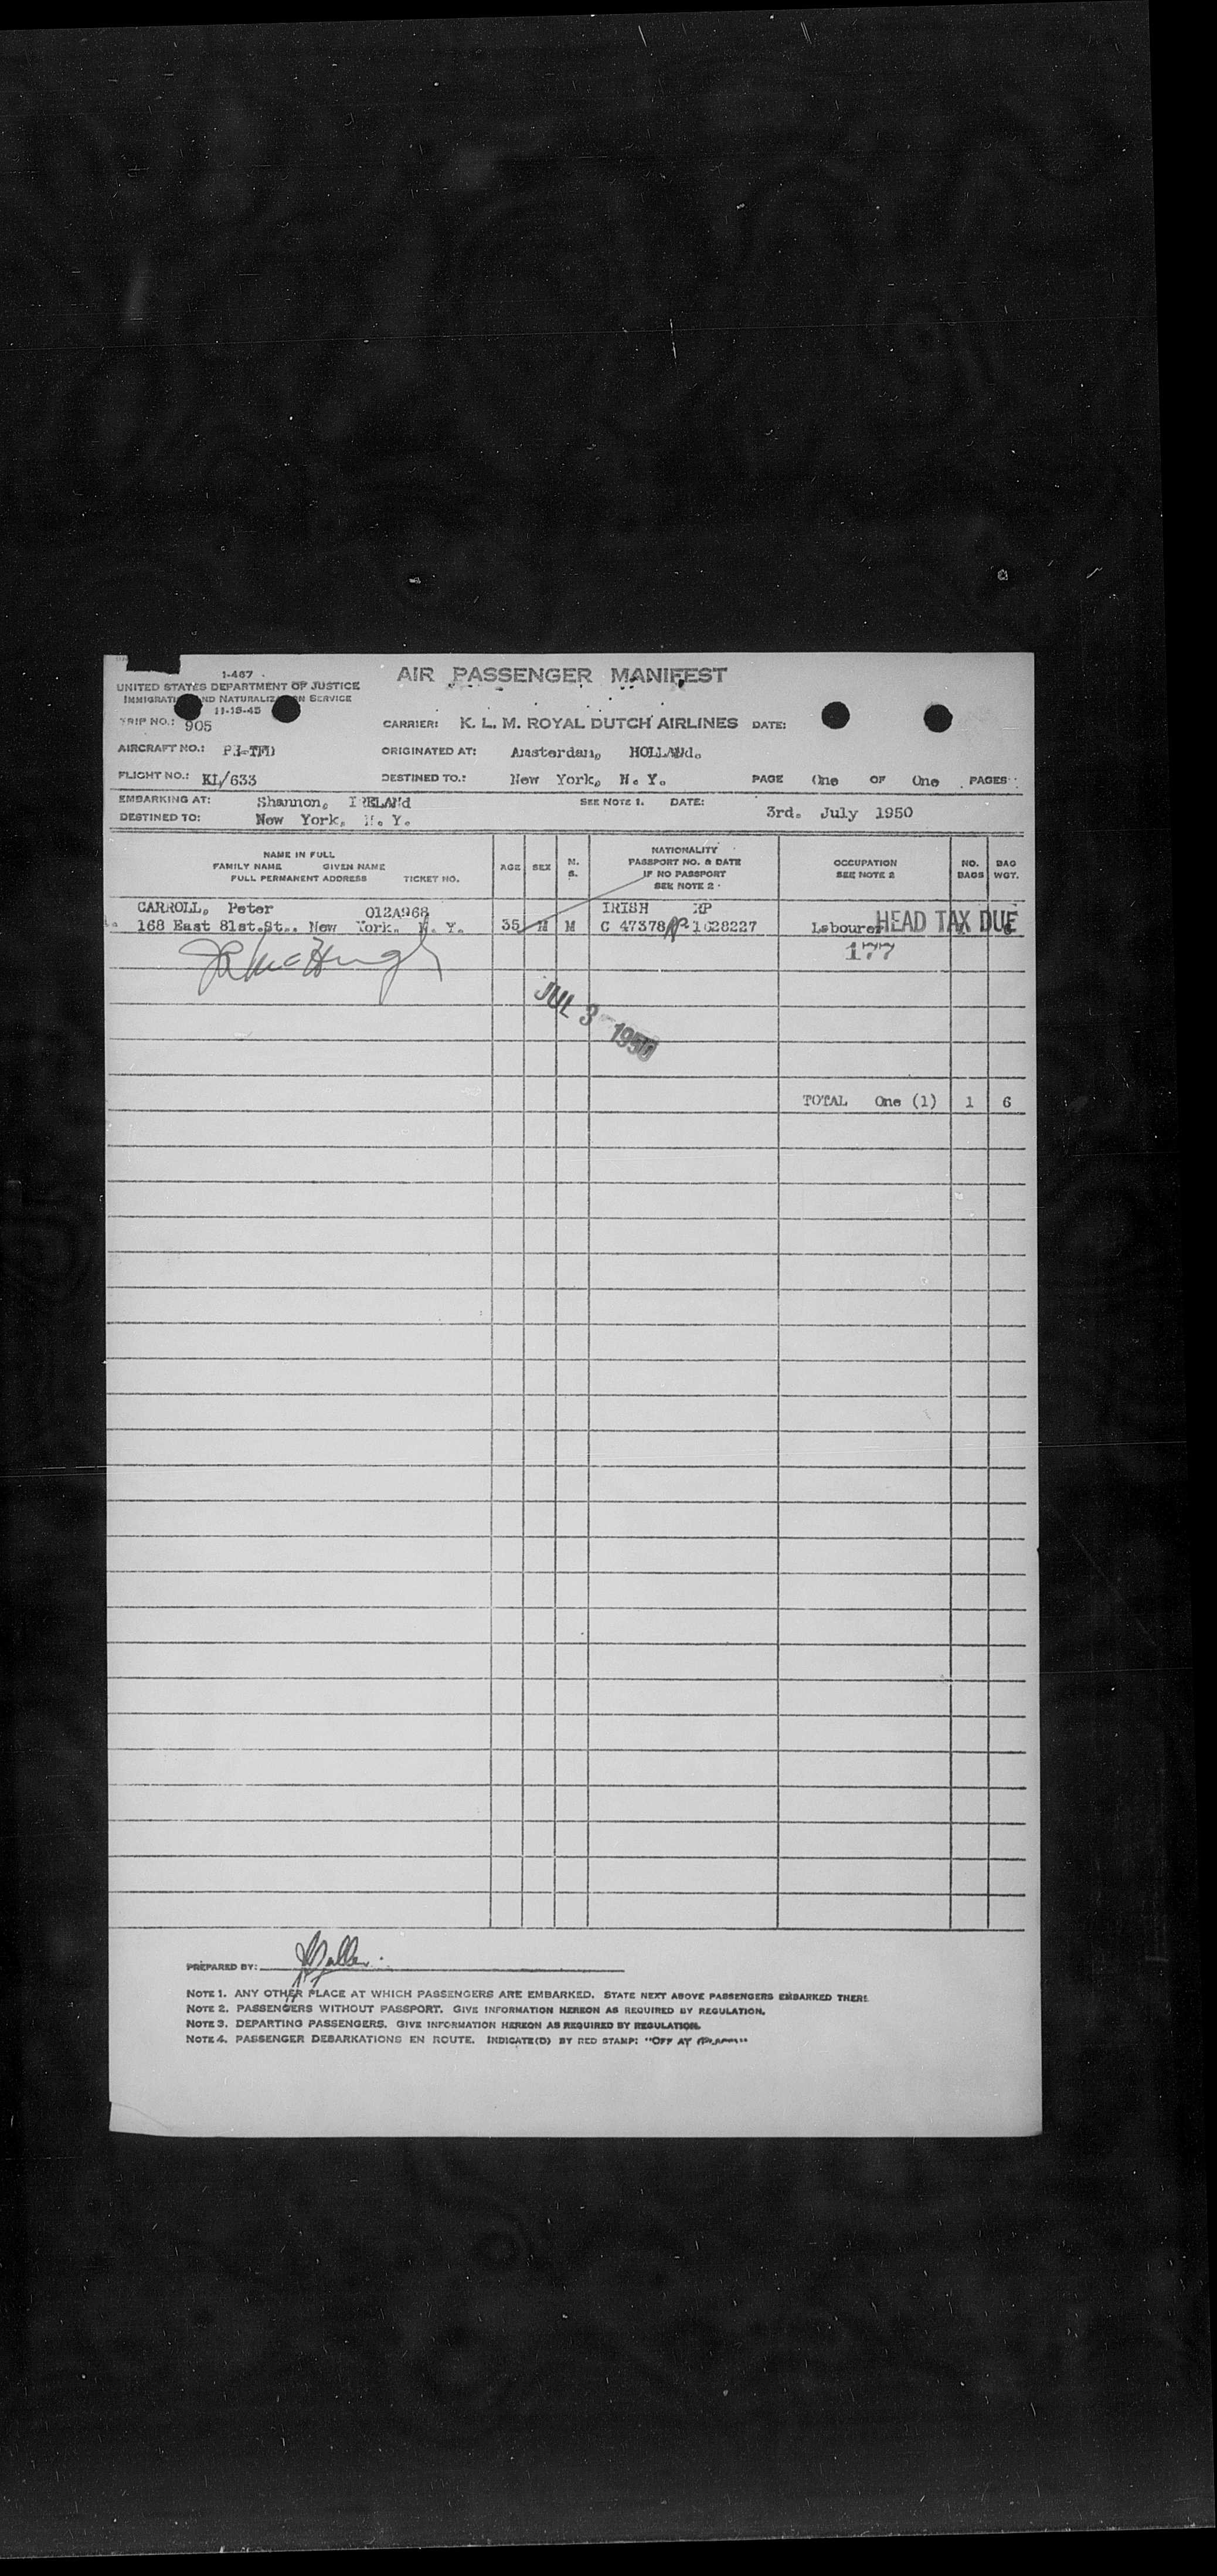 1-467
AIR PASSENGER MANIFEST
UNITED STATES DEPARTMENT OF JUSTICE
IMMIGRATION AND NATURALIZATION SERVICE
11-15-45
TRIP NO.: 905
CARRIER: K. L. M. ROYAL DUTCH AIRLINES DATE:
AIRCRAFT NO.: PH-TFD
ORIGINATED AT: Amsterdam, HOLLANd.
FLIGHT NO.: KL/633
DESTINED TO.: New York, N. Y. PAGE One OF One PAGES
EMBARKING AT: Shannon, IRELANd SEE NOTE 1. DATE: 3rd. July 1950
DESTINED TO: New York, N. Y.
NAME IN FULL
FAMILY NAME GIVEN NAME
FULL PERMANENT ADDRESS TICKET NO.
AGE SEX M. S.
NATIONALITY
PASSPORT NO. & DATE
IF NO PASSPORT
SEE NOTE 2
OCCUPATION
SEE NOTE 2
NO. BAGS
BAG WGT.
CARROLL, Peter 012A968 IRISH RP
168 East 81st.St.. New York. N. Y. 35 M M C 47378 RP 1628227 Labourer HEAD TAX DUE
177
JUL 3 1950
TOTAL One (1) 1 6
PREPARED BY:
NOTE 1. ANY OTHER PLACE AT WHICH PASSENGERS ARE EMBARKED. STATE NEXT ABOVE PASSENGERS EMBARKED THERE
NOTE 2. PASSENGERS WITHOUT PASSPORT. GIVE INFORMATION HEREON AS REQUIRED BY REGULATION.
NOTE 3. DEPARTING PASSENGERS. GIVE INFORMATION HEREON AS REQUIRED BY REGULATION.
NOTE 4. PASSENGER DEBARKATIONS EN ROUTE. INDICATE(D) BY RED STAMP: "OFF AT (PLACE)"